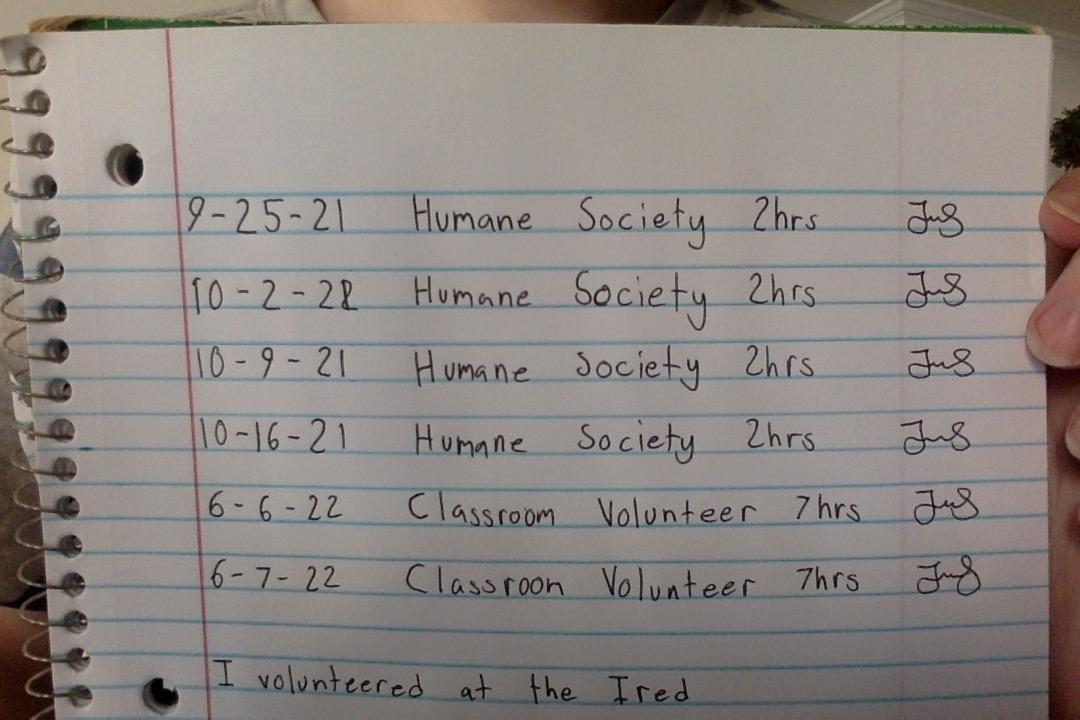 9-25-21 Humane Society 2hrs JmS
10-2-22 Humane Society 2hrs JmS
10-9-21 Humane Society 2hrs JmS
10-16-21 Humane Society 2hrs JmS
6-6-22 Classroom Volunteer 7hrs JmS
6-7-22 Classroon Volunteer 7hrs JmS
I volunteered at the Ired